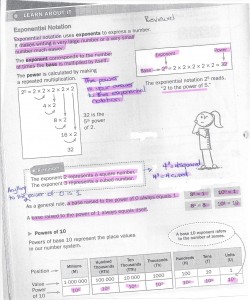 6 LEARN ABOUT IT
Revised
Exponential Notation
Exponential notation uses exponents to express a number.
It makes writing a very large number or a very small
number much easier.
The exponent corresponds to the number
of times the base is multiplied by itself.
The power is calculated by making
a repeated multiplication.
2⁵ = 2 × 2 × 2 × 2 × 2
4 × 2
8 × 2
16 × 2
32
32 is the
5th power
of 2.
Exponent
Power
Base
The exponential notation 2⁵ reads,
"2 to the power of 5."
The exponent 2 represents a square number.
The exponent 3 represents a cubed number.
4² = 4 squared
4³ = 4 cubed
As a general rule, a base raised to the power of 0 always equals 1.
A base raised to the power of 1 always equals itself.
Powers of 10
Powers of base 10 represent the place values
in our number system.
A base 10 exponent refers
to the number of zeroes.
Position
Millions (M)
Hundred Thousands (HTh)
Ten Thousands (TTh)
Thousands (Th)
Hundreds (H)
Tens (T)
Units (U)
Value
1 000 000
100 000
10 000
1000
100
10
1
Power of 10
10⁶
10⁵
10⁴
10³
10²
10¹
10⁰